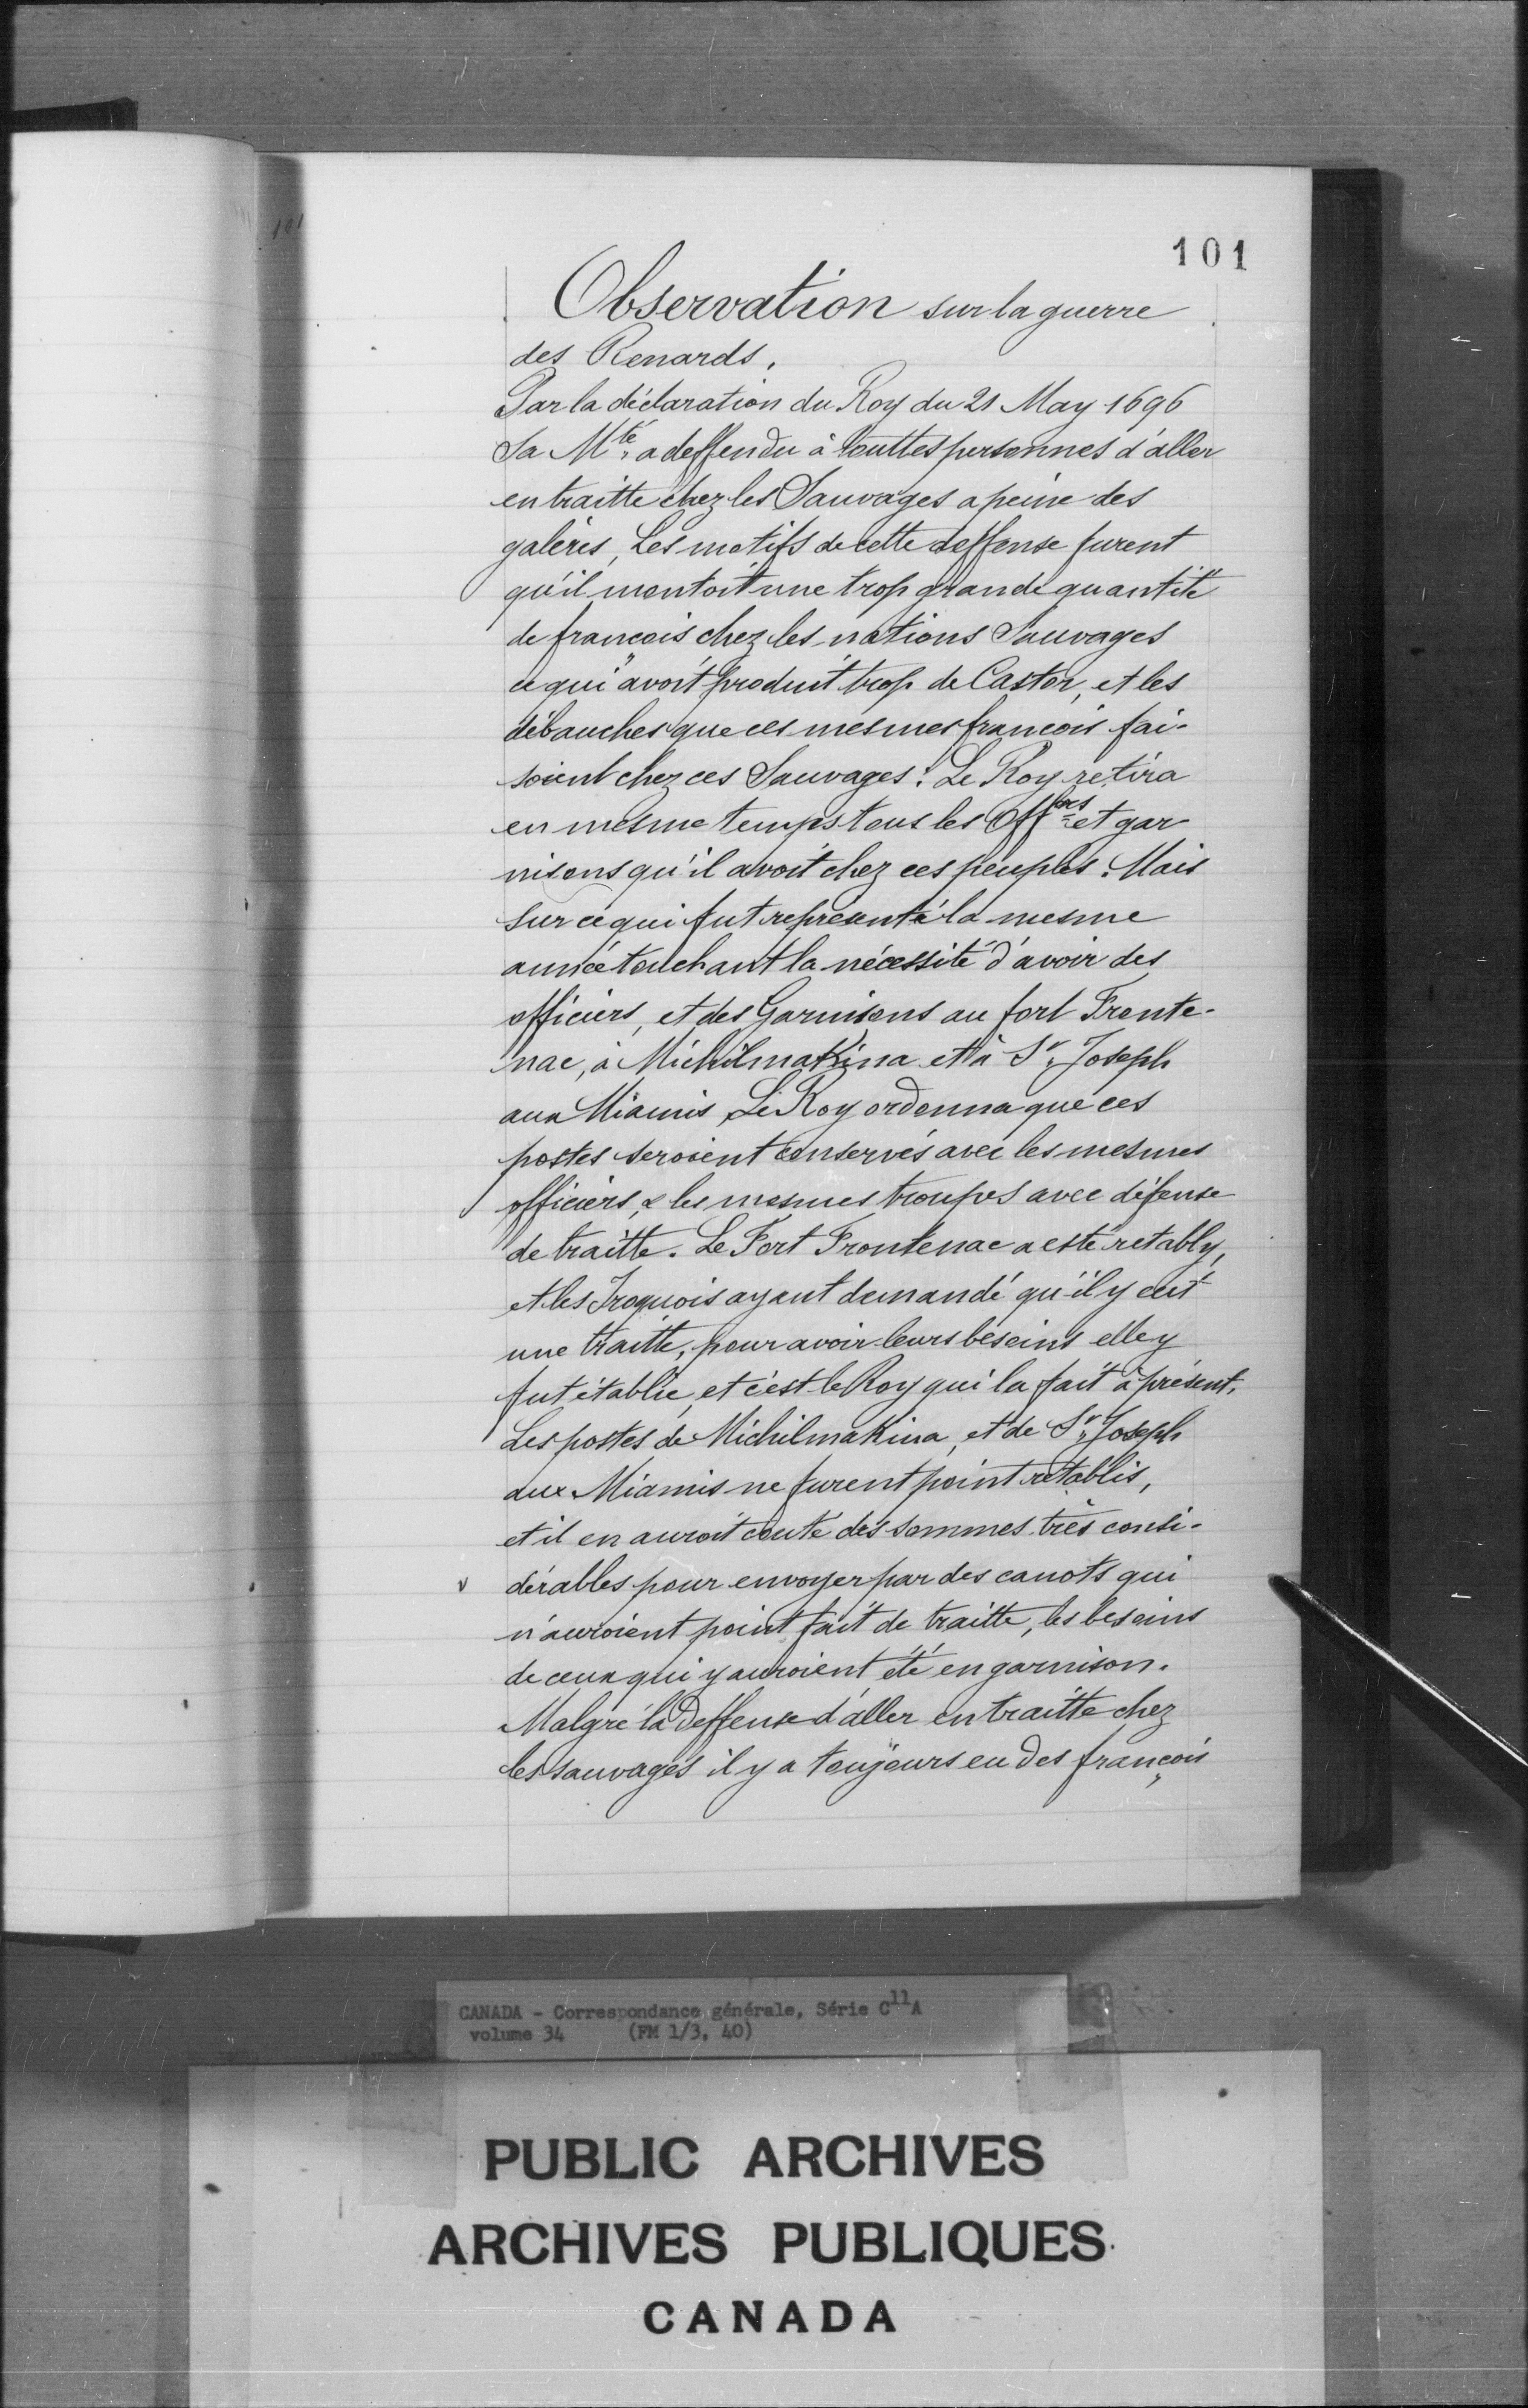 101
101
Observation sur la guerre
des Renards.
Par la déclaration du Roy du 21 May 1696
Sa Mté a deffendu à touttes personnes d'aller
en traitte chez les Sauvages a peine des
galéres, Les motifs de cette deffense furent
qu'il montoit une trop grande quantité
de francois chez les nations Sauvages
ce qui avoit produit trop de Castor, et les
débauches que ces mesmes francois fai-
soient chez ces Sauvages. Le Roy retira
en mesme temps tous les Offers et gar
nisons qu'il avoit chez ces peuples. Mais
sur ce qui fut représenté la mesme
année touchant la nécessité d'avoir des
officiers, et des Garnisons au fort Fronte-
nac, à Michilmakina et à St. Joseph
aux Miamis, Le Roy ordonna que ces
postes seroient conservés avec les mesmes
officiers, & les mesmes troupes avec défense
de traitte. Le Fort Frontenac a esté retably,
et les Iroquois ayant demandé qu'il y eut
une traitte, pour avoir leurs besoins elle y
fut établie, et c'est le Roy qui la fait à présent.
Les postes de Michilmakina, et de St. Joseph
aux Miamis ne furent point rétablis,
et il en auroit couté des sommes très consi-
v dérables pour envoyer par des canots qui
n'auroient point fait de traitte, les besoins
de ceux qui y auroient été en garnison.
Malgré la Deffense d'aller en traitte chez
les sauvages il y a toujours eu des françois
CANADA - Correspondance générale, Série C11A
volume 34 (FM 1/3, 40)
PUBLIC ARCHIVES
ARCHIVES PUBLIQUES
CANADA